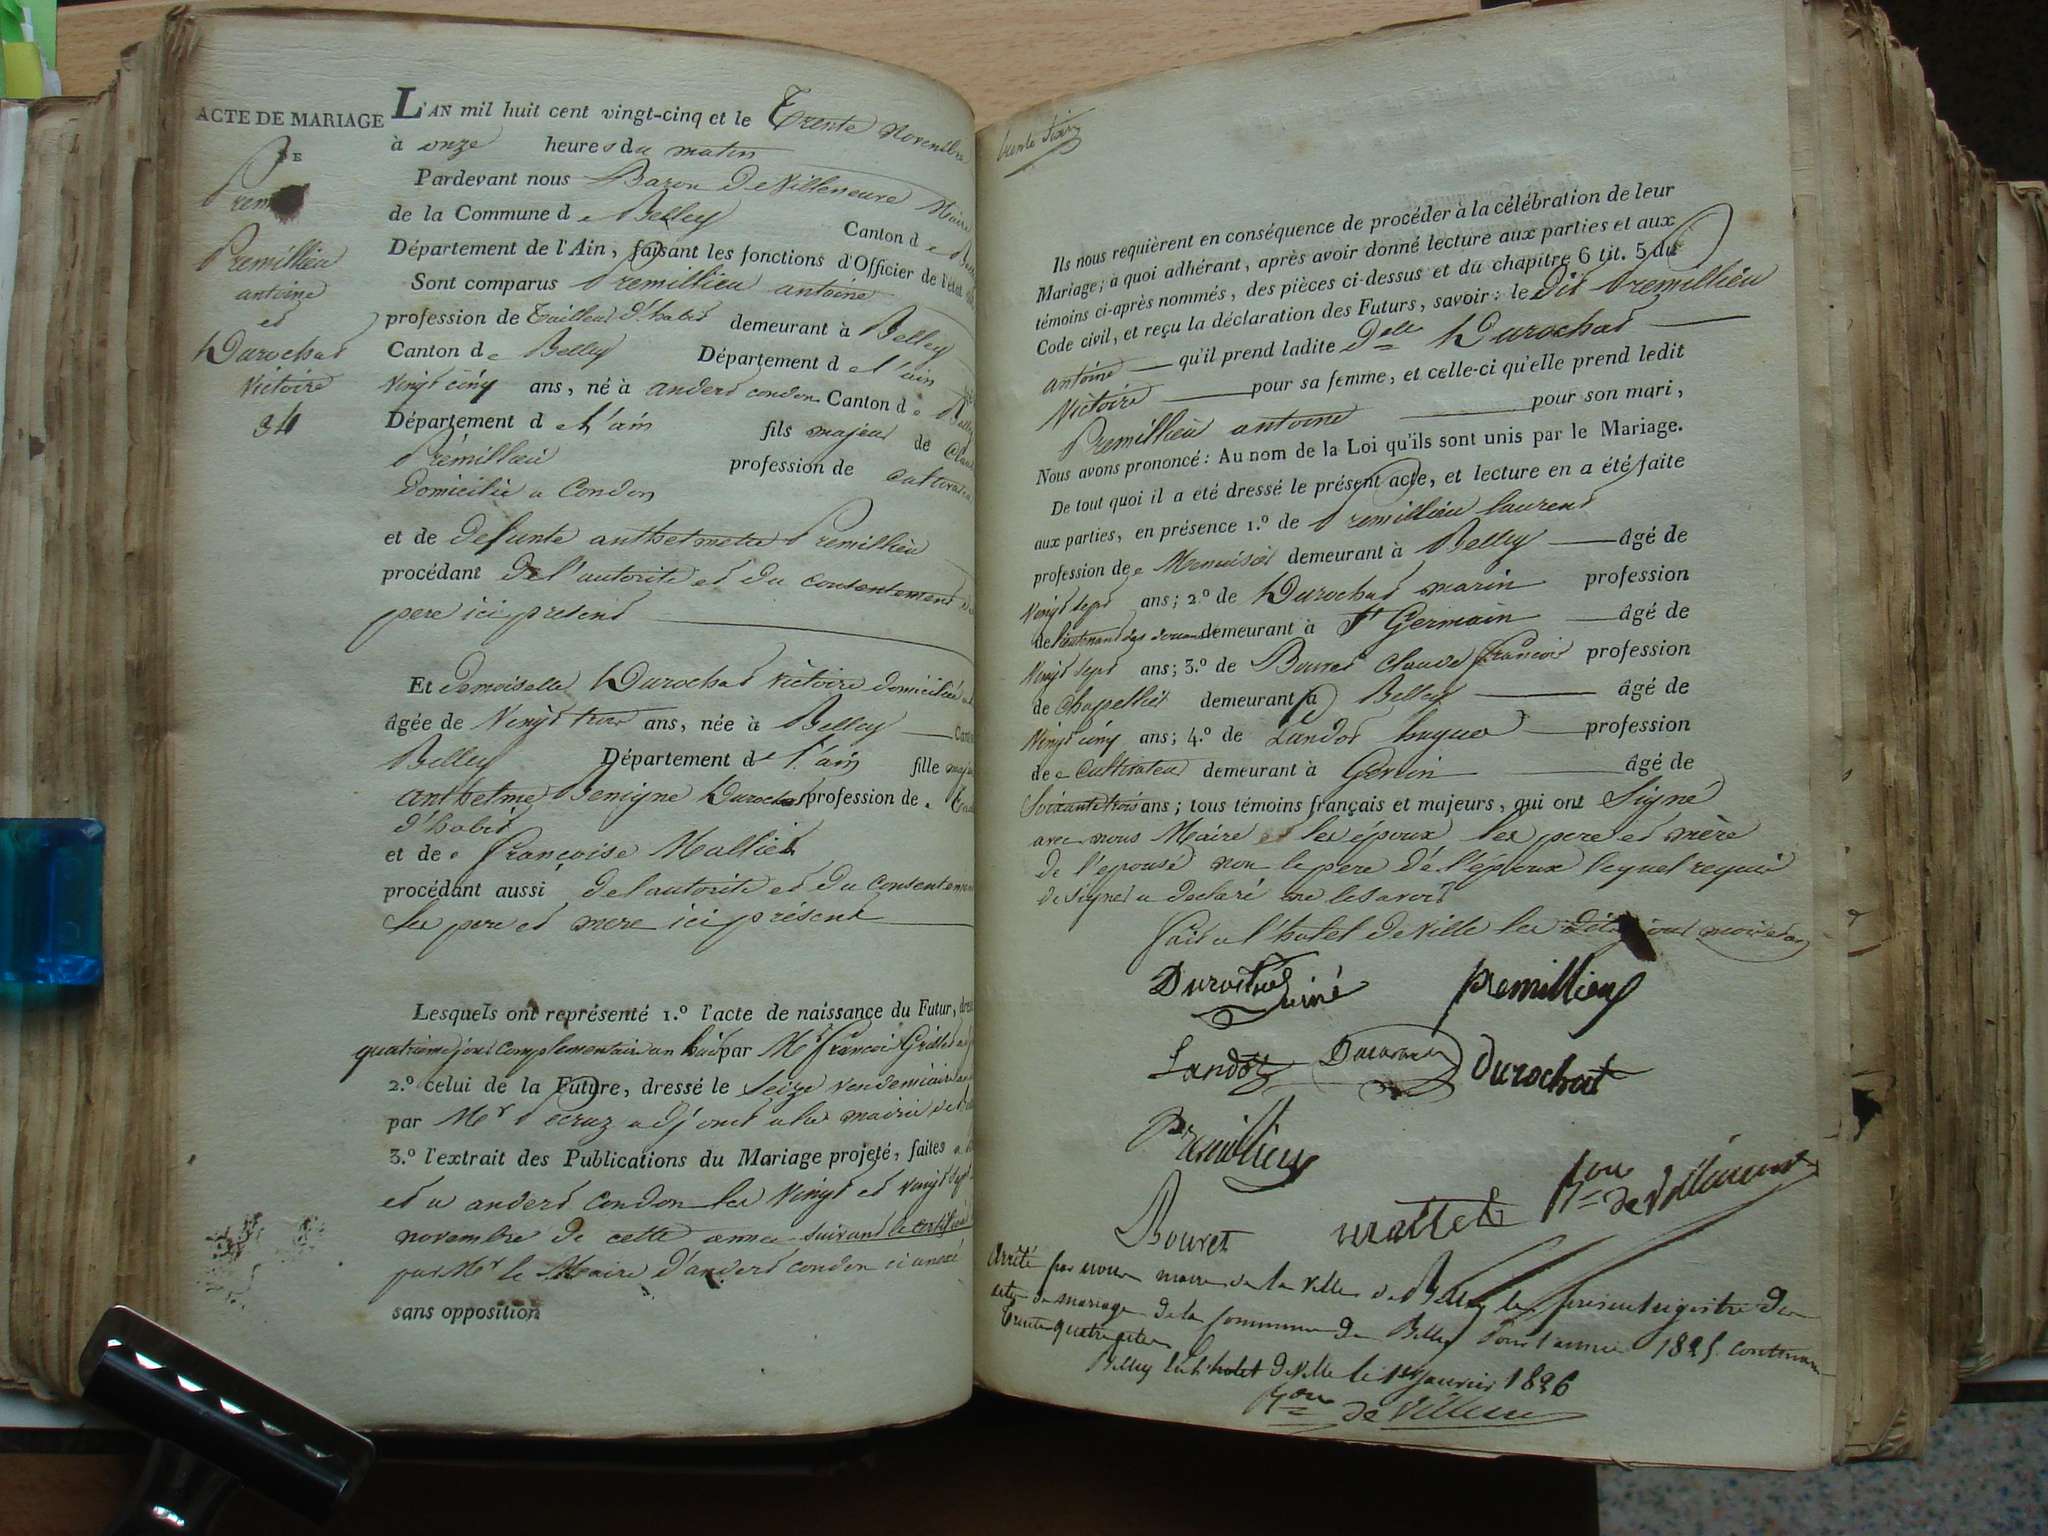 ACTE DE MARIAGE
DE
Prem
Premillieu
antoine
et
Durochat
Victoire
34
L'AN mil huit cent vingt-cinq et le Trente novembre
à onze heures du matin
Pardevant nous Baron DeVilleneuve Maire
de la Commune de Belley Canton de
Département de l'Ain, faisant les fonctions d'Officier de l'état
Sont comparus Premillieu antoine
profession de Tailleur d'habit demeurant à Belley
Canton de Belley Département de l'ain
Vingt cinq ans, né à andert condon Canton de Belley
Département de l'ain fils majeur de
Premillieu profession de cultivateur
domicilié a Condon
et de defunte anthelmette Premillieu
procédant de l'autorité et du consentement
pere ici présent
Et demoiselle Durochat Victoire domiciliée
âgée de Vingt trois ans, née à Belley
Belley Département de l'ain fille
anthelme Benigne Durochat profession de
d'habit
et de françoise Mallier
procédant aussi de l'autorité et du consentement
les pere et mere ici présent
Lesquels ont représenté 1.º l'acte de naissance du Futur,
quatrieme jour complementaire an huit par Mr françois
2.º celui de la Future, dressé le Seize vendemiaire
par Mr Pecruz adjoint a la mairie de
3.º l'extrait des Publications du Mariage projeté, faites a
et a andert condon les Vingt et vingt sept
novembre de cette année suivant le certificat
par Mr le Maire d'andert condon ci annexé
sans opposition
Ils nous requièrent en conséquence de procéder à la célébration de leur
Mariage; à quoi adhérant, après avoir donné lecture aux parties et aux
témoins ci-après nommés, des pièces ci-dessus et du chapitre 6 tit. 5 du
Code civil, et reçu la déclaration des Futurs, savoir: le dit Premillieu
antoine qu'il prend ladite Dlle Durochat
Victoire pour sa femme, et celle-ci qu'elle prend ledit
Premillieu antoine pour son mari,
Nous avons prononcé: Au nom de la Loi qu'ils sont unis par le Mariage.
De tout quoi il a été dressé le présent acte, et lecture en a été faite
aux parties, en présence 1.º de Premillieu laurent
profession de Menuisier demeurant à Belley âgé de
Vingt sept ans; 2.º de Durochat marin profession
de lieutenant des douanes demeurant à St Germain âgé de
Vingt sept ans; 3.º de Bouvet Claude françois profession
de Chapellier demeurant à Belley âgé de
Vingt cinq ans; 4.º de Landot hugues profession
de cultivateur demeurant à âgé de
Soixante trois ans; tous témoins français et majeurs, qui ont Signé
avec nous Maire et les époux les pere et mère
de l'épouse non le pere de l'époux lequel requis
de signer a declaré ne le savoir
fait a l'hotel de Ville les dits jour mois et an
Premillieu
Landoz Durochat
Premillieu
Bouvet
Bon de Villeneuve
Arrêté par nous maire de la Ville de Belley le présent registre des
actes de mariage de la Commune de Belley pour l'année 1825 contenant
Trente quatre actes
Belley en l'hotel de Ville le 1er janvier 1826
Bon de Villeneuve